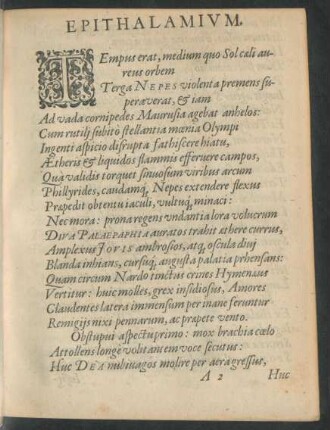 EPITHALAMIVM.
TEmpus erat, medium quo Sol cæli au-
reus orbem
Terga NEPES violenta premens su-
peraverat, & iam
Ad vada cornipedes Maurusia agebat anhelos:
Cum rutili subito stellantia mœnia Olympi
Ingenti aspicio disrupta fathiscere hiatu,
Ætheris & liquidos flammis effervere campos,
Qua validis torquet sinuosum viribus arcum
Phillyrides, caudamq́; Nepes extendere flexus
Præpedit obtentu iaculi, vultuq́; minaci:
Nec mora: prona regens undantia lora volucrum
DIVA PALAEPAPHIA auratos trahit æthere currus,
Amplexus IOVIS ambrosios, atq; oscula divi
Blanda inhians, cursuq́; angusta palatia prhensans:
Quam circum Nardo tinctas crines Hymenæus
Vertitur: huic molles, grex insidiosus, Amores
Claudentes latera immensum per inane feruntur
Remigijs nixi pennarum, ac præpete vento.
Obstupui aspectu primo: mox brachia cælo
Attollens longe volitantem voce secutus:
Huc DEA nubivagos molire per aera gressus,
A 2 Huc